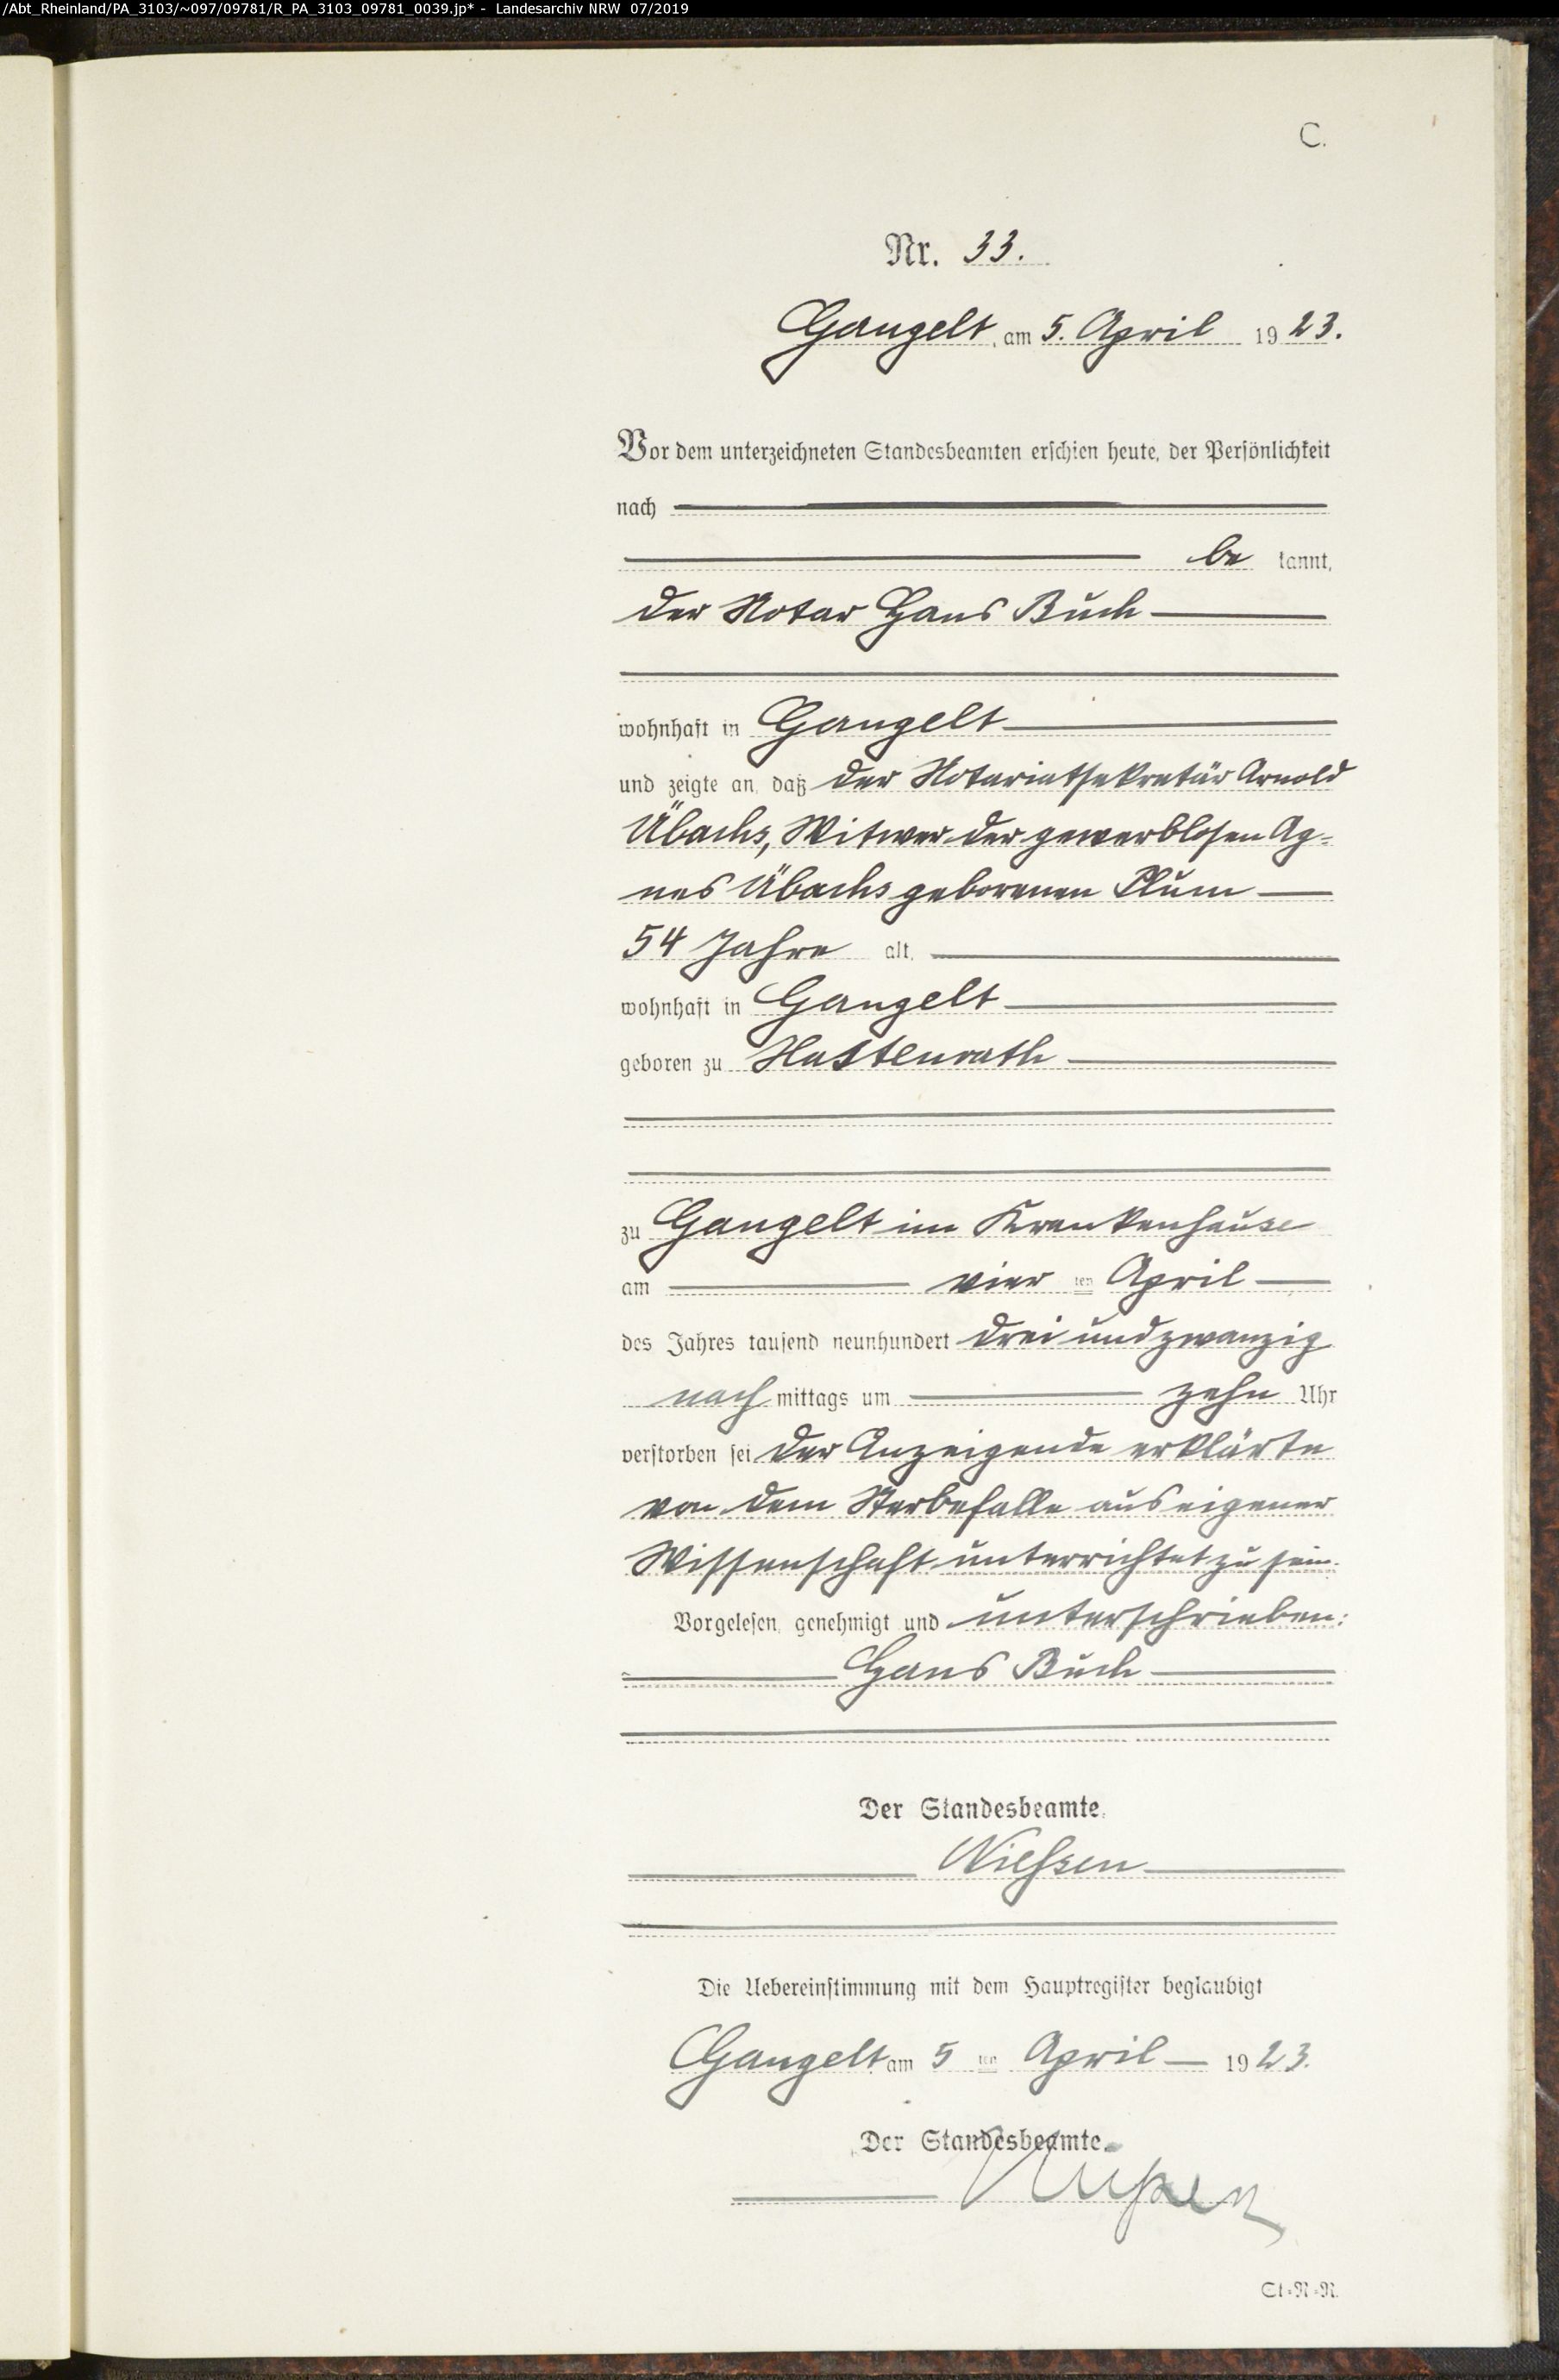 /Abt_Rheinland/PA_3103/~097/09781/R_PA_3103_09781_0039.jp* - Landesarchiv NRW 07/2019
C.
Nr. 33.
Gangelt, am 5. April 1923.
Vor dem unterzeichneten Standesbeamten erschien heute, der Persönlichkeit
nach
be kannt,
der Notar Hans Buch
wohnhaft in Gangelt
und zeigte an, daß der Notariatsekretär Arnold
Übachs, Witwer der gewerblosen Ag-
nes Übachs geborenen Plum
54 Jahre alt,
wohnhaft in Gangelt
geboren zu Hastenrath
zu Gangelt im Krankenhause
am vier ten April
des Jahres tausend neunhundert drei und zwanzig
nach mittags um zehn Uhr
verstorben sei der Anzeigende erklärte
von dem Sterbefalle aus eigener
Wissenschaft unterrichtet zu sein.
Vorgelesen, genehmigt und unterschrieben:
Hans Buch
Der Standesbeamte.
Nießen
Die Uebereinstimmung mit dem Hauptregister beglaubigt
Gangelt am 5 ten April 1923.
Der Standesbeamte.
Nießen
St.=R.=N.